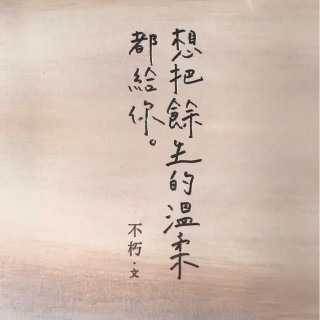 想把餘生的溫柔
都給你。
不朽·文